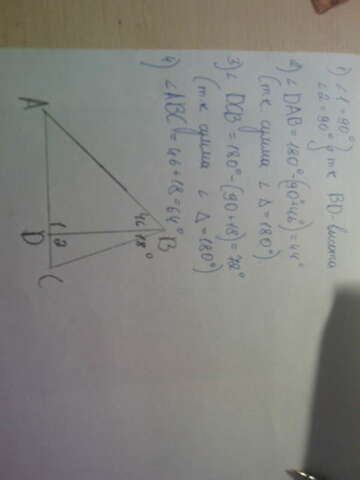 1) ∠1 = 90° } тк BD - высота
∠2 = 90°
2) ∠DAB = 180° - (90° + 46°) = 44°
(тк сумма ∠ Δ = 180°)
3) ∠DCB = 180° - (90 + 18) = 72°
(тк сумма ∠ Δ = 180°)
4) ∠ABC = 46 + 18 = 64°
B
46° 18°
1 2
A D C